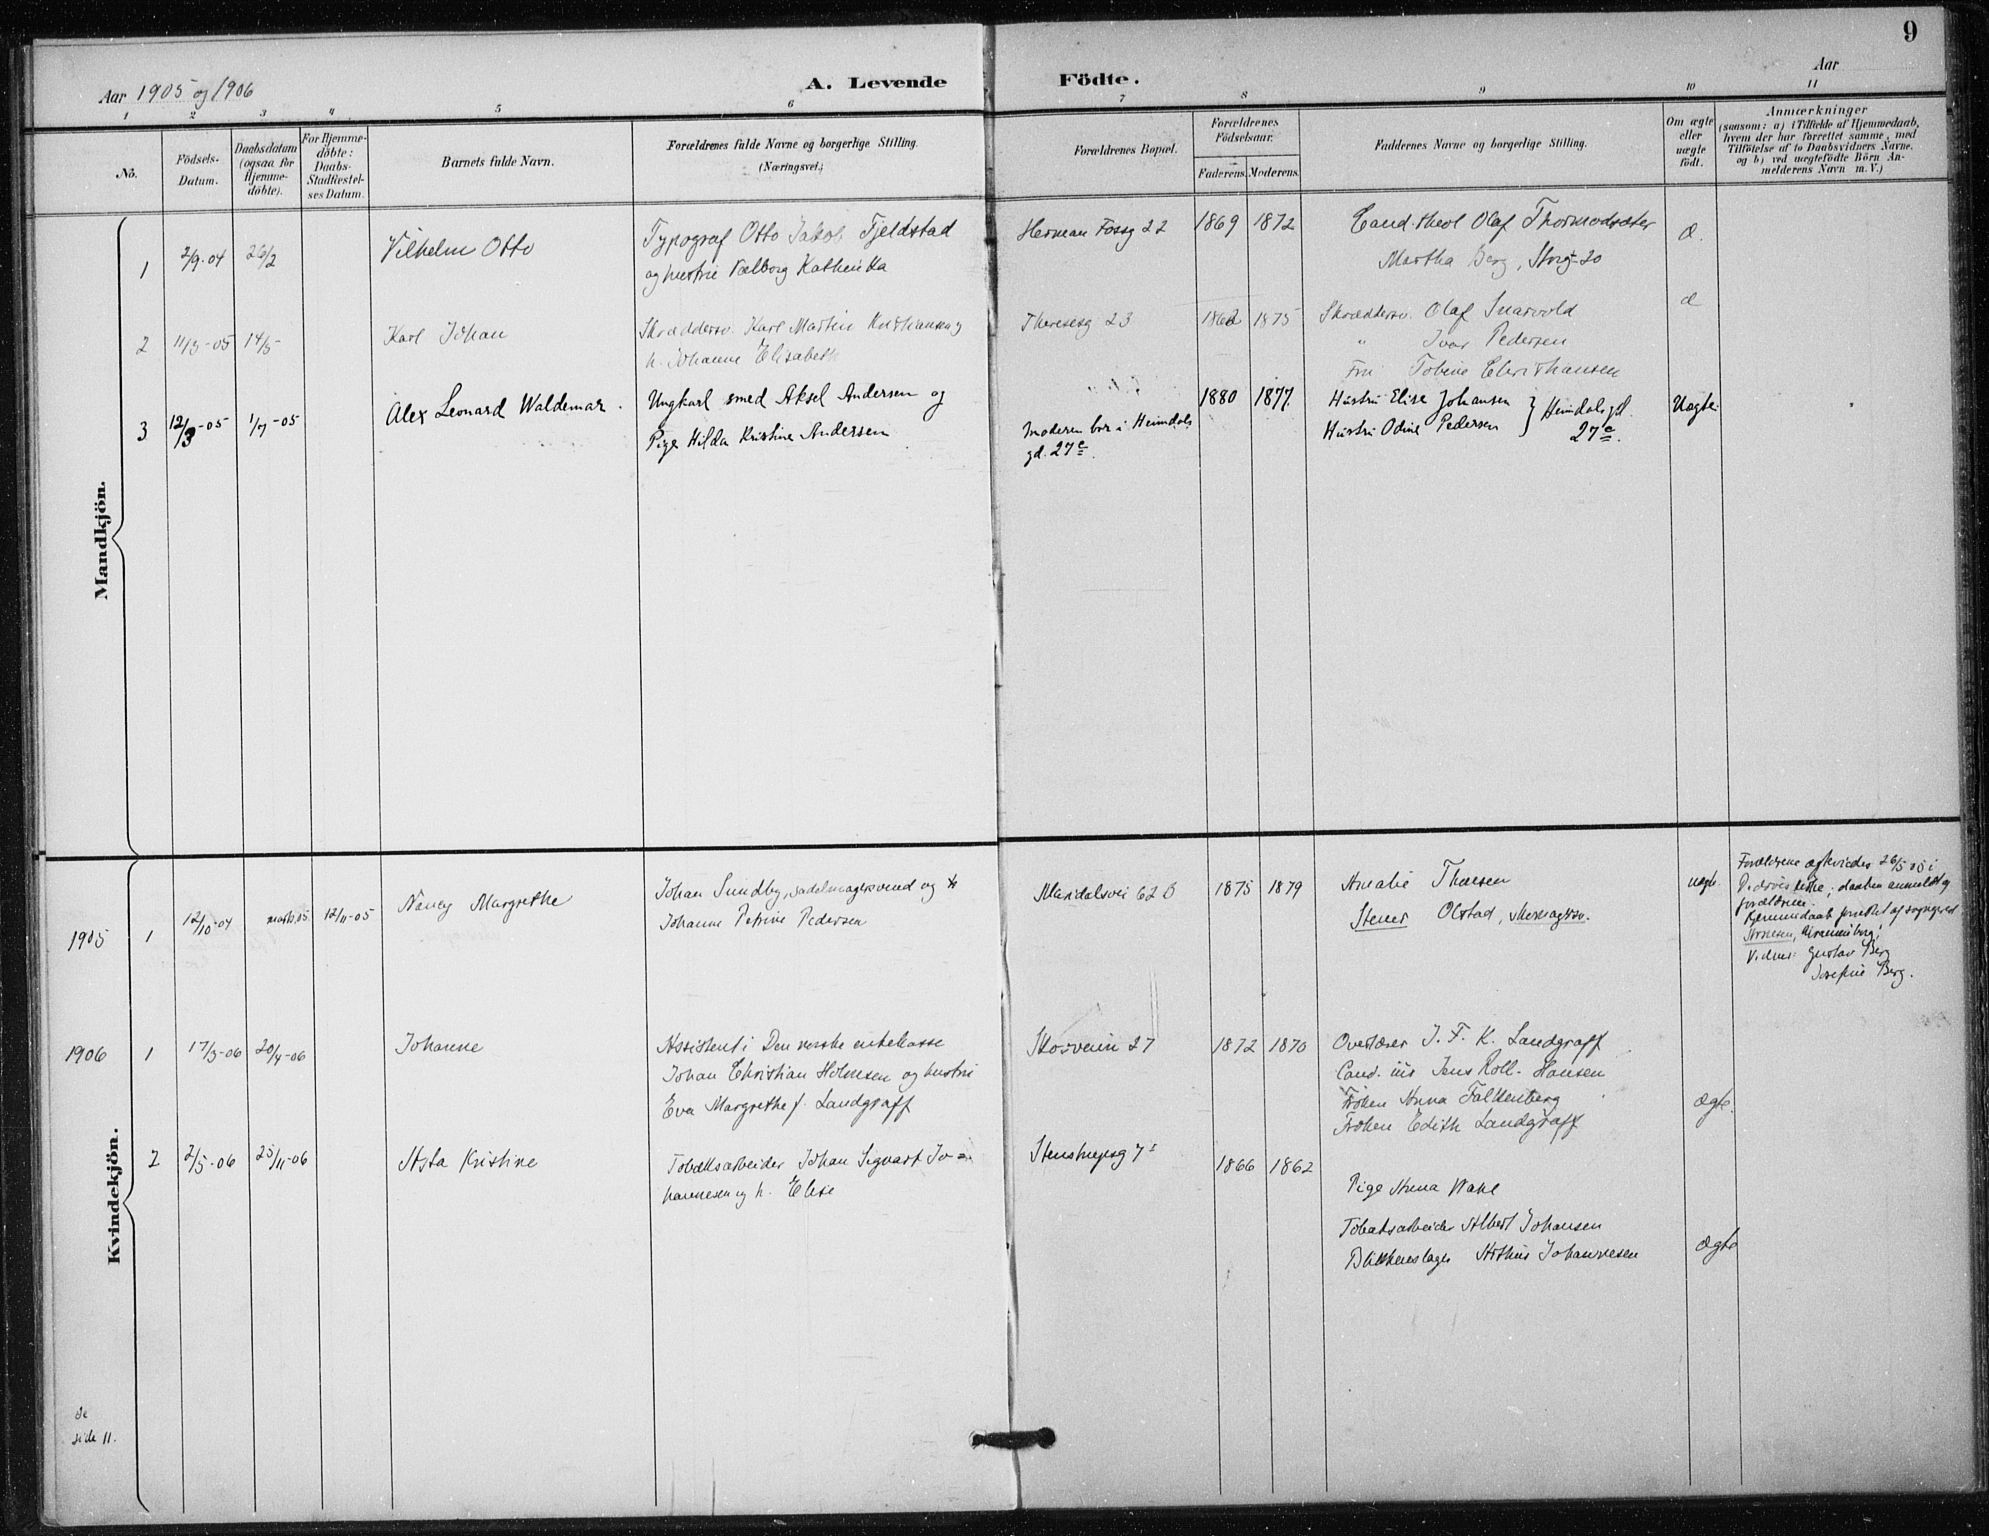 9
Aar 1905 og 1906
A. Levende Födte.
Aar
1 2 3 4 5 6 7 8 9 10 11
No.
Födsels-
Datum.
Daabsdatum
(ogsaa for
Hjemme-
döbte).
For Hjemme-
döbte:
Daabs-
Stadfæstel-
ses Datum.
Barnets fulde Navn.
Forældrenes fulde Navne og borgerlige Stilling.
(Næringsvei.)
Forældrenes Bopæl.
Forældrenes
Födselsaar.
Faderens. Moderens.
Faddernes Navne og borgerlige Stilling.
Om ægte
eller
uægte
födt.
Anmærkninger
(saasom: a) i Tilfælde af Hjemmedaab,
hvem der har forrettet samme, med
Tilföielse af to Daabsvidners Navne.
og b) ved uægtefödte Börn An-
melderens Navn m. V.)
Mandkjön.
1 2/9-04 26/2 Vilhelm Otto
Typograf Otto Jakob Fjeldstad
og hustru Valborg Kathinka
Herman Fossg 22 1869 1872
Cand. theol Olaf Thormodsæter
Martha Berg, Storg 20
æ.
2 11/3-05 14/5 Karl Johan
Skræddersv. Karl Martin Kristiansen og
h. Johanne Elisabeth
Theresesg 23 1862 1875
Skræddersv. Olaf Snarvold
" Ivar Pedersen
Fru Tobine Christiansen
æ
3 12/3-05 1/7-05 Alex Leonard Waldemar.
Ungkarl smed Aksel Andersen og
Pige Hilda Kristine Andersen
Moderen bor i Heimdals
gd. 27c.
1880 1877.
Hustru Elise Johansen
Hustru Odine Pedersen } Heimdals gd.
27c.
Uægte
Kvindekjön.
1905 1 12/10-04 12/11-05 Nancy Margrethe
Johan Sundby, sadelmagersvend og
Johanne Petrine Pedersen
Maridalsvei 62 B 1875 1879
Amalie Thoresen
Stener Olstad,
uægte
Forældrene ægteviedes 26/5 05 i
Petrus kirke; daaben anmeldt af
forældrene.
Hjemmedaab forrettet af sogneprest
Vidner: Gustav Berg
Josefine Berg.
1906 1 17/3-06 20/4-06 Johanne
Assistent i Den norske enkekasse
Johan Christian Holmsen og hustru
Eva Margrethe f. Landgraff
Skovveien 27 1872 1870
Overlærer J. F. K. Landgraff
Cand. jur Jens Roll-Hansen
Frøken Anna Falkenberg
Frøken Edith Landgraff
Ægte.
2 2/5-06 25/11-06 Asta Kristine
Tobaksarbeider Johan Sigvart Jo-
hannesen og h. Elise
Stenstrupsg 7 1866 1862
Pige Anna Wahl
Tobaksarbeider Albert Johansen
Blikkenslager Arthur Johannesen
Ægte
Se
side 11.